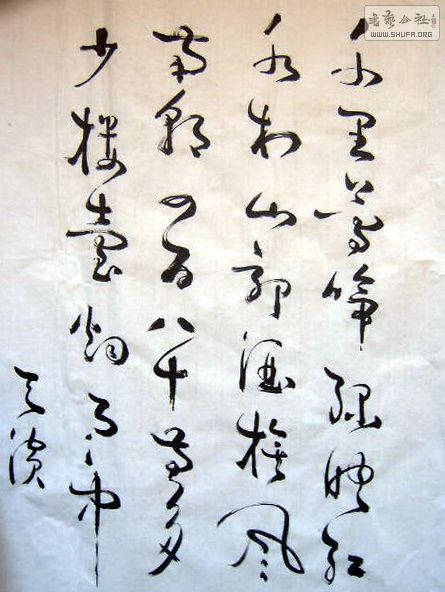 千里鶯啼綠映紅
水村山郭酒旗風
南朝四百八十寺多
少樓臺烟雨中
书艺公社
WWW.SHUFA.ORG